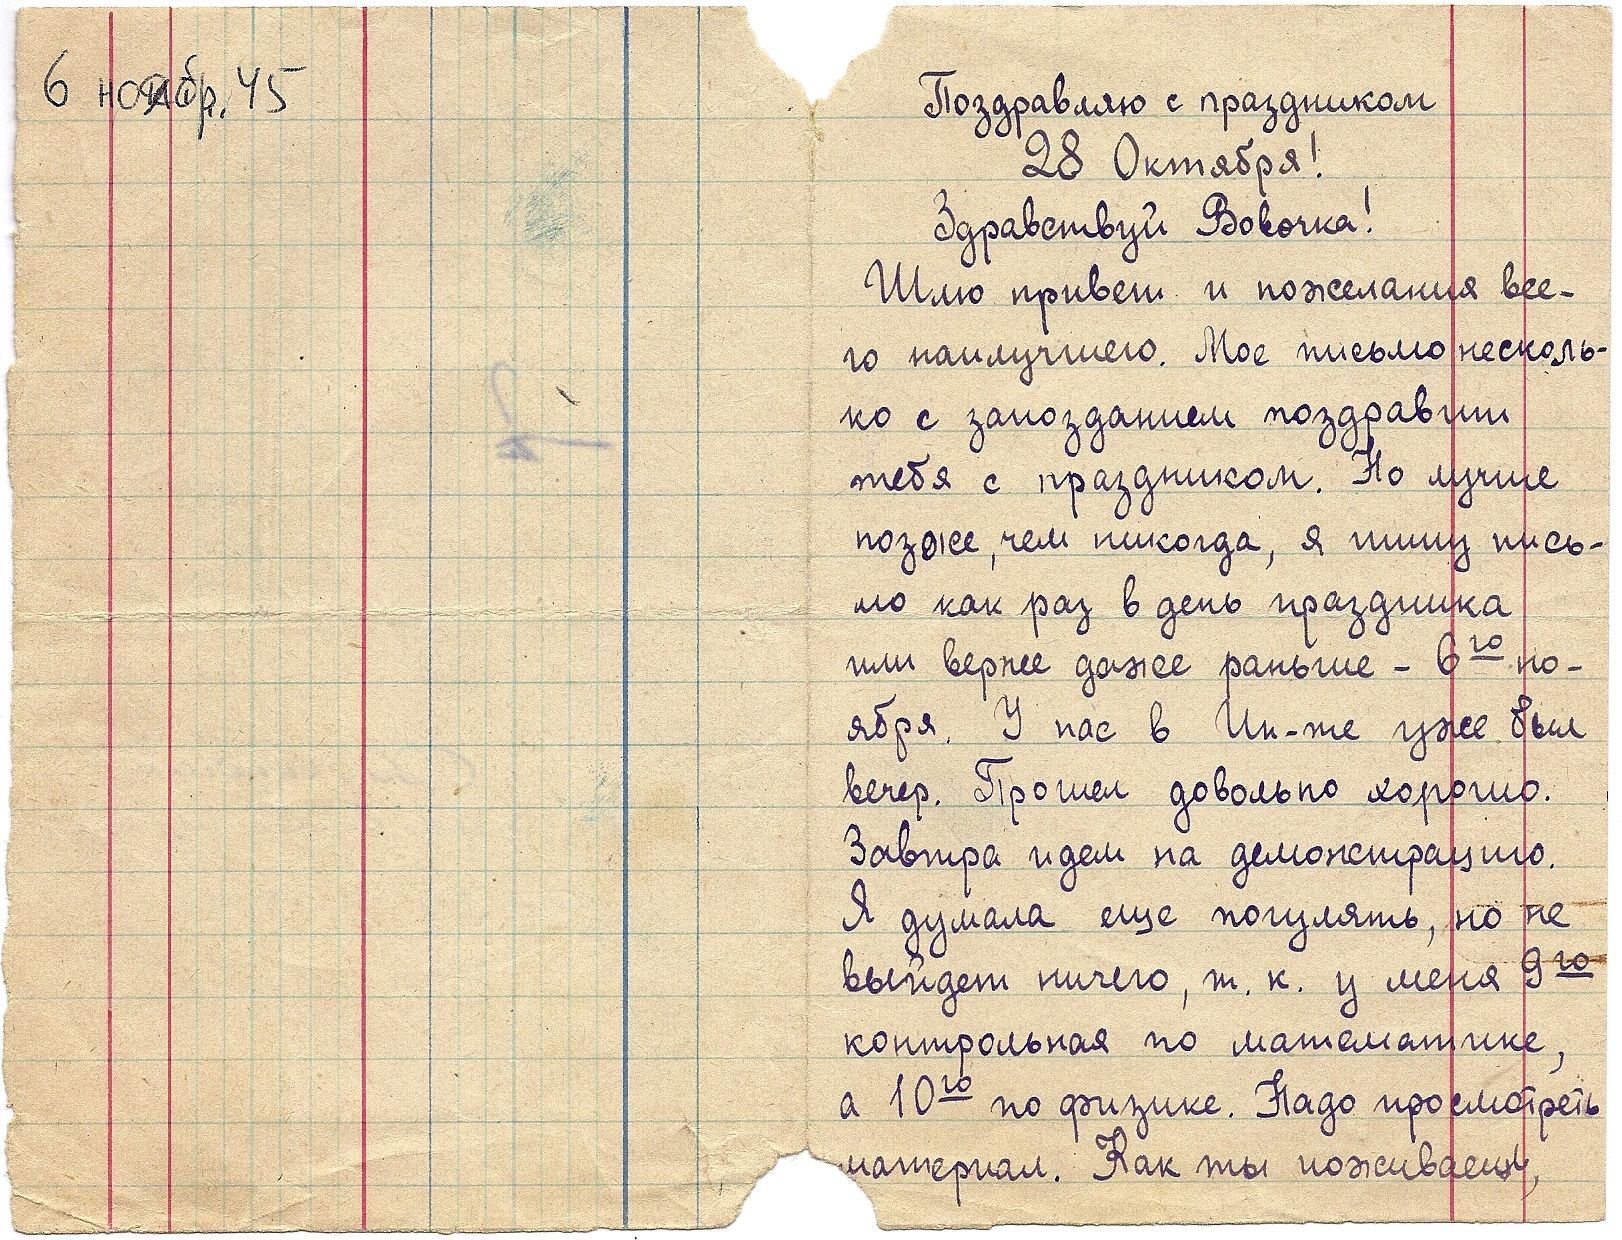 6 ноябр. 45
Поздравляю с праздником
28 Октября!
Здравствуй Вовочка!
Шлю привет и пожелания все-
го наилучшего. Мое письмо несколь-
ко с запозданием поздравит
тебя с праздником. Но лучше
позже, чем никогда, я пишу пись-
мо как раз в день праздника
или вернее даже раньше – 6го но-
ября. У нас в Ин-те уже был
вечер. Прошел довольно хорошо.
Завтра идем на демонстрацию.
Я думала еще погулять, но не
выйдет ничего, т. к. у меня 9го
контрольная по математике,
а 10го по физике. Надо просмотреть
материал. Как ты поживаешь,